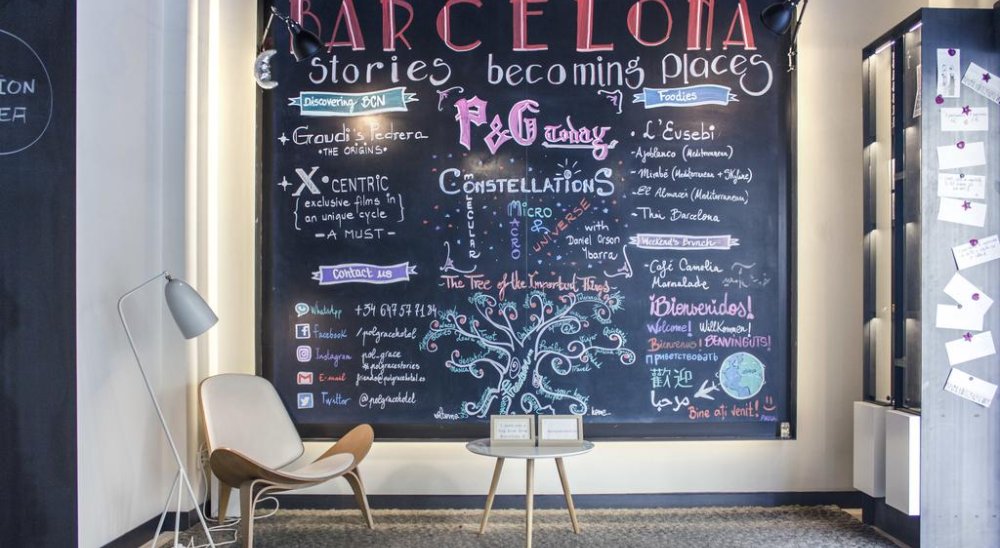 BARCELONA
stories becoming places
Discovering BCN
Gaudi's Pedrera
• THE ORIGINS •
X • CENTRIC
exclusive films in
an unique cycle
— A MUST —
Contact us
WhatsApp
Facebook /polgracehotel
Instagram pol_grace
@polgracestories
E-mail friends@polgracehotel.es
Twitter @polgracehotel
P&G today
CONSTELLATIONS
MOLECULAR
MICRO
&
MACRO
UNIVERSE
with
Daniel Orson
Ybarra
The Tree of the Important Things
home
Foodies
• L'Eusebi
- Ajoblanco (Mediterranean)
- Mirabé (Mediterranean + Skyline)
- El Almacén (Mediterranean)
- Thai Barcelona
Weekend's Brunch
- Café Camelia
Marmalade
¡Bienvenidos!
Welcome! Willkommen!
Bienvenus! BENVINGUTS!
приветствовать
歡迎
مرحبا
Bine ați venit!
ION
EA